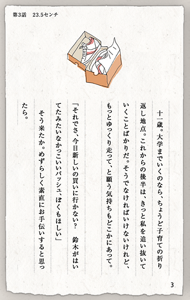 第3話　23.5センチ
十一歳。大学までいくのなら、ちょうど子育ての折り
返し地点。これからの後半は、きっと私を追い抜いて
いくことばかりだ。そうでなければいけないけれど、
もっとゆっくり走って、と願う気持ちもどこかにあって。
「それでさ、今日新しいの買いに行かない？　鈴木がはい
てたみたいなかっこいいバッシュ、ぼくもほしい」
そう来たか。めずらしく素直にお手伝いすると思っ
たら。
3